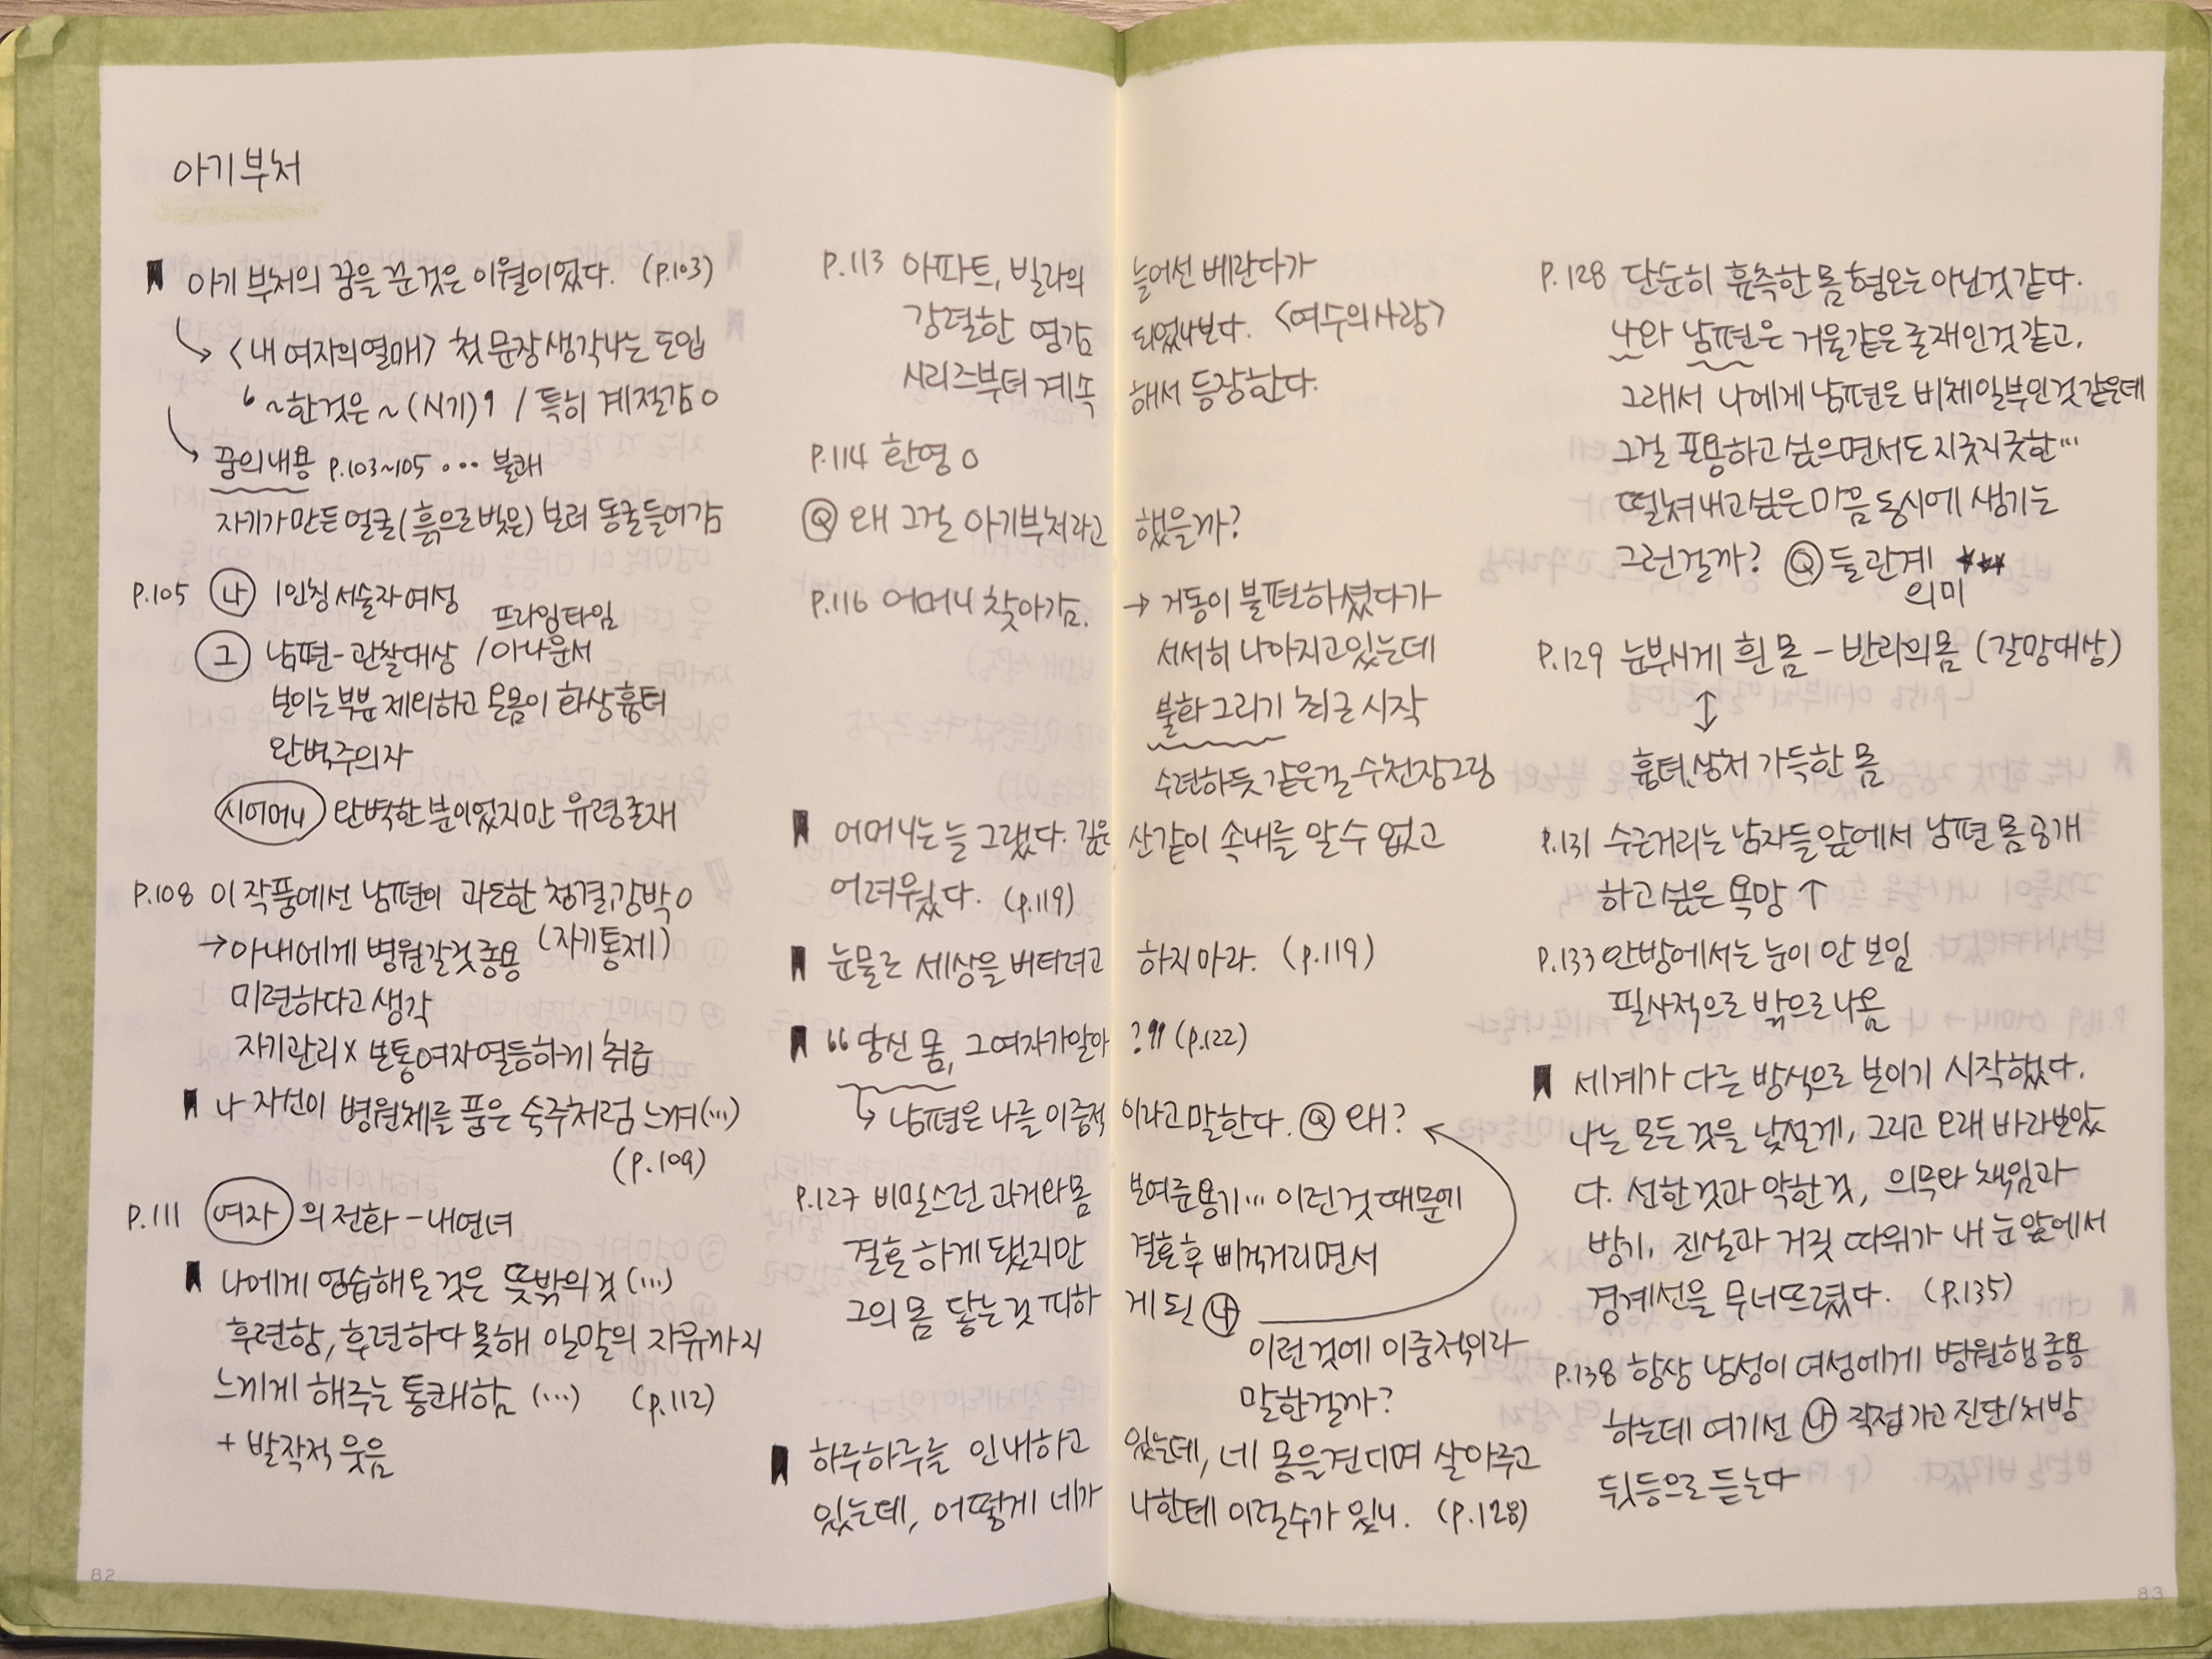 아기부처
아기 부처의 꿈을 꾼 것은 이월이었다. (p.103)
↳ <내 여자의 열매> 첫 문장 생각나는 도입
“~한것은 ~ (시기)” / 특히 계절감 o
↳ 꿈의 내용 p.103~105 ... 불쾌
자기가 만든 얼굴(흙으로 빚은) 보러 동굴 들어감
p.105 나 1인칭 서술자 여성
프라임타임
그 남편-관찰대상 / 아나운서
보이는 부분 제외하고 온몸이 화상흉터
완벽주의자
시어머니 완벽한 분이었지만 유령존재
p.108 이 작품에선 남편이 과도한 청결,강박 o
→아내에게 병원갈것 종용 (자기통제)
미련하다고 생각
자기관리x 보통여자 열등하게 취급
나 자신이 병원체를 품은 숙주처럼 느껴(...)
(p.109)
p.111 여자의 전화 - 내연녀
나에게 엄습해온 것은 뜻밖의 것 (...)
후련함, 후련하다 못해 일말의 자유까지
느끼게 해주는 통쾌함 (...) (p.112)
+ 발작적 웃음
p.113 아파트, 빌라의 늘어선 베란다가
강렬한 영감 되었나보다. <여수의 사랑>
시리즈부터 계속 해서 등장한다.
p.114 환영 o
Q 왜 그걸 아기부처라고 했을까?
p.116 어머니 찾아감. → 거동이 불편하셨다가
서서히 나아지고있는데
불화그리기 최근 시작
수련하듯 같은걸 수천장그림
어머니는 늘 그랬다. 깊은 산같이 속내를 알 수 없고
어려웠다. (p.119)
눈물로 세상을 버티려고 하지 마라. (p.119)
“당신 몸, 그 여자가 알아?” (p.122)
↳ 남편은 나를 이중적 이라고 말한다. Q 왜?
p.127 비밀스런 과거와 몸 보여준 용기... 이런것 때문에
결혼 하게 됐지만 결혼 후 삐걱거리면서
그의 몸 닿는 것 피하 게 된 나
이런 것에 이중적이라
말한걸까?
하루하루를 인내하고 있는데, 네 몸을 견디며 살아주고
있는데, 어떻게 네가 나한테 이럴 수가 있니. (p.128)
p.128 단순히 흉측한 몸 혐오는 아닌것 같다.
나와 남편은 거울같은 존재인것 같고,
그래서 나에게 남편은 비체일부인것 같은데
그걸 포용하고 싶으면서도 지긋지긋한...
떨쳐내고싶은 마음 동시에 생기는
그런걸까? Q 둘 관계 ***
의미
p.129 눈부시게 흰 몸 - 반라의 몸 (갈망대상)
↕
흉터, 상처 가득한 몸
p.131 수군거리는 남자들 앞에서 남편 몸 공개
하고 싶은 욕망 ↑
p.133 안방에서는 눈이 안 보임
필사적으로 밖으로 나옴
세계가 다른 방식으로 보이기 시작했다.
나는 모든 것을 낯설게, 그리고 오래 바라보았
다. 선한 것과 악한 것, 의무와 책임과
방기, 진실과 거짓 따위가 내 눈 앞에서
경계선을 무너뜨렸다. (p.135)
p.138 항상 남성이 여성에게 병원행 종용
하는데 여기선 나 직접 가고 진단/처방
뒷등으로 듣는다
82
83